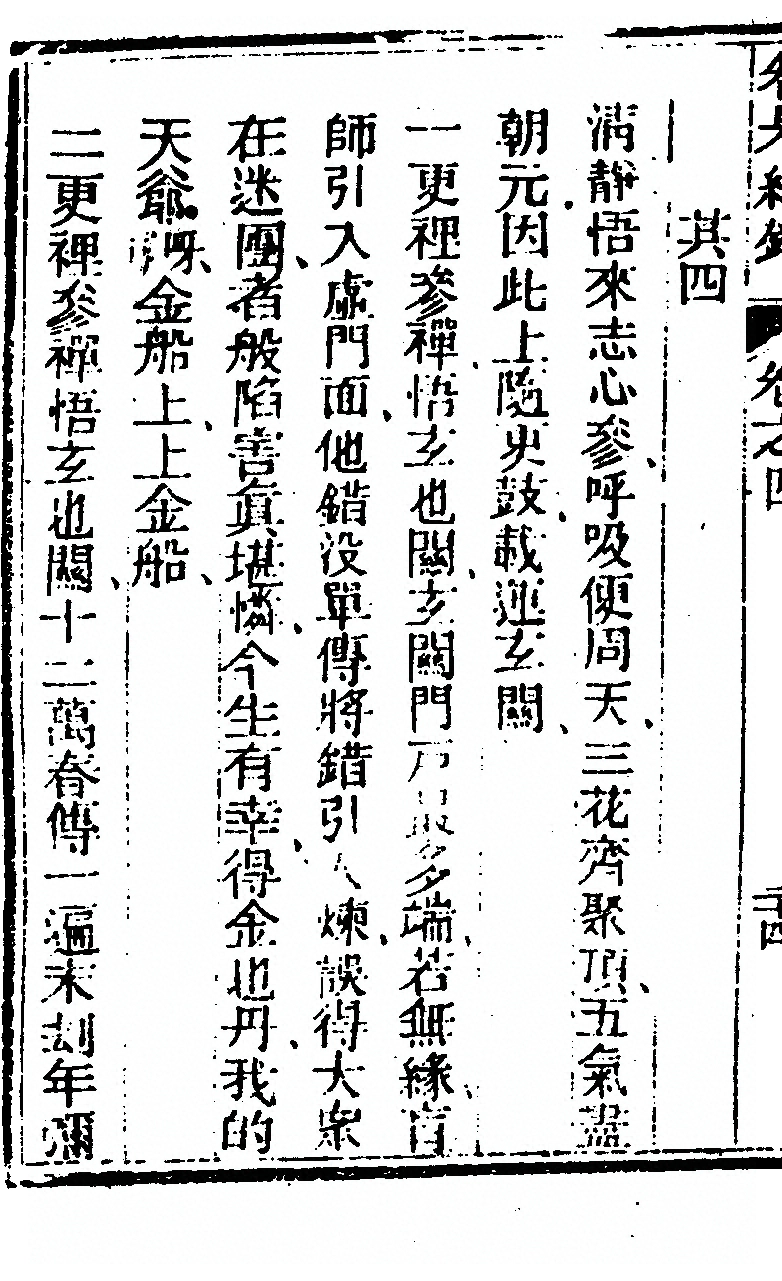 其四
清靜悟來志心參、呼吸便周天、三花齊聚頂、五氣盡
朝元。因此上隨更鼓、載運玄關、
一更裡參禪、悟玄也關、玄關門戶最多端、若無緣、盲
師引入虛門面、他錯沒單傳將錯引人煉、誤得大衆
在迷團、者般陷害眞堪憐、今生有幸、得金也丹、我的
天爺。呀、金船上、上金船、
二更裡參禪悟玄也關、十二萬春傳一遍末刦年彌
卷之四
二十四